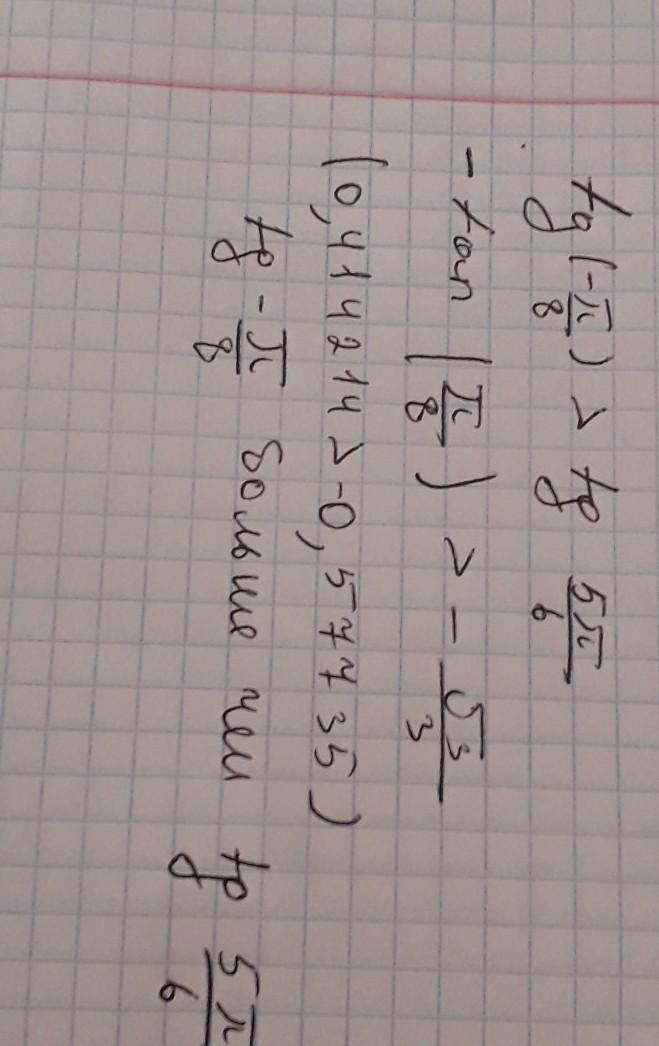 tg(-π/8) > tg 5π/6
- tan (π/8) > - √3/3
(0,414214 > -0,577735)
tg -π/8 больше чем tg 5π/6